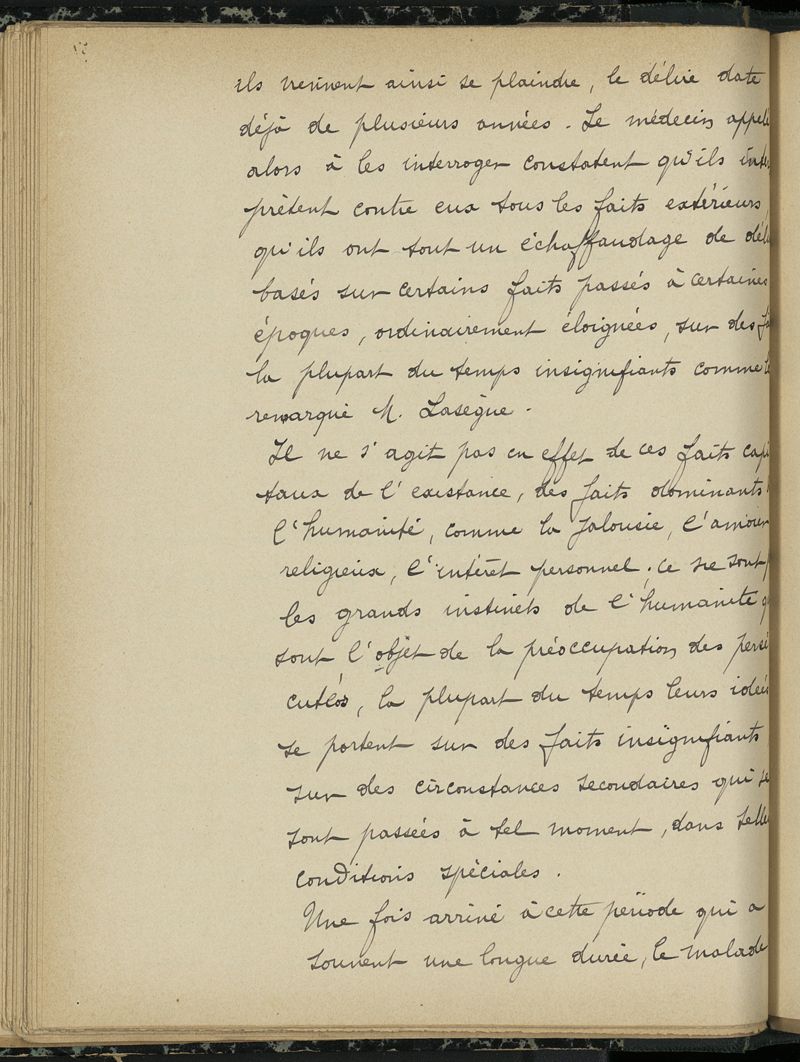 ils viennent ainsi se plaindre, le délire date
déjà de plusieurs années. Le médecin appelé
alors à les interroger constatent qu'ils inter
prètent contre eux tous les faits extérieurs,
qu'ils ont tout un échaffaudage de
basés sur certains faits passés à certaines
époques, ordinairement éloignées, sur des
la plupart du temps insignifiants comme
remarqué M. Lasègue.
Il ne s'agit pas en effet de ces faits capi
taux de l'existance, des faits dominants
l'humanité, comme la jalousie, l'amour
religieux, l'intérêt personnel; ce ne sont
les grands instincts de l'humanité
sont l'objet de la préoccupation des persé
cutés, la plupart du temps leurs idées
se portent sur des faits insignifiants
sur des circonstances secondaires qui se
sont passées à tel moment, dans telles
conditions spéciales.
Une fois arrivé à cette période qui a
souvent une longue durée, le malade